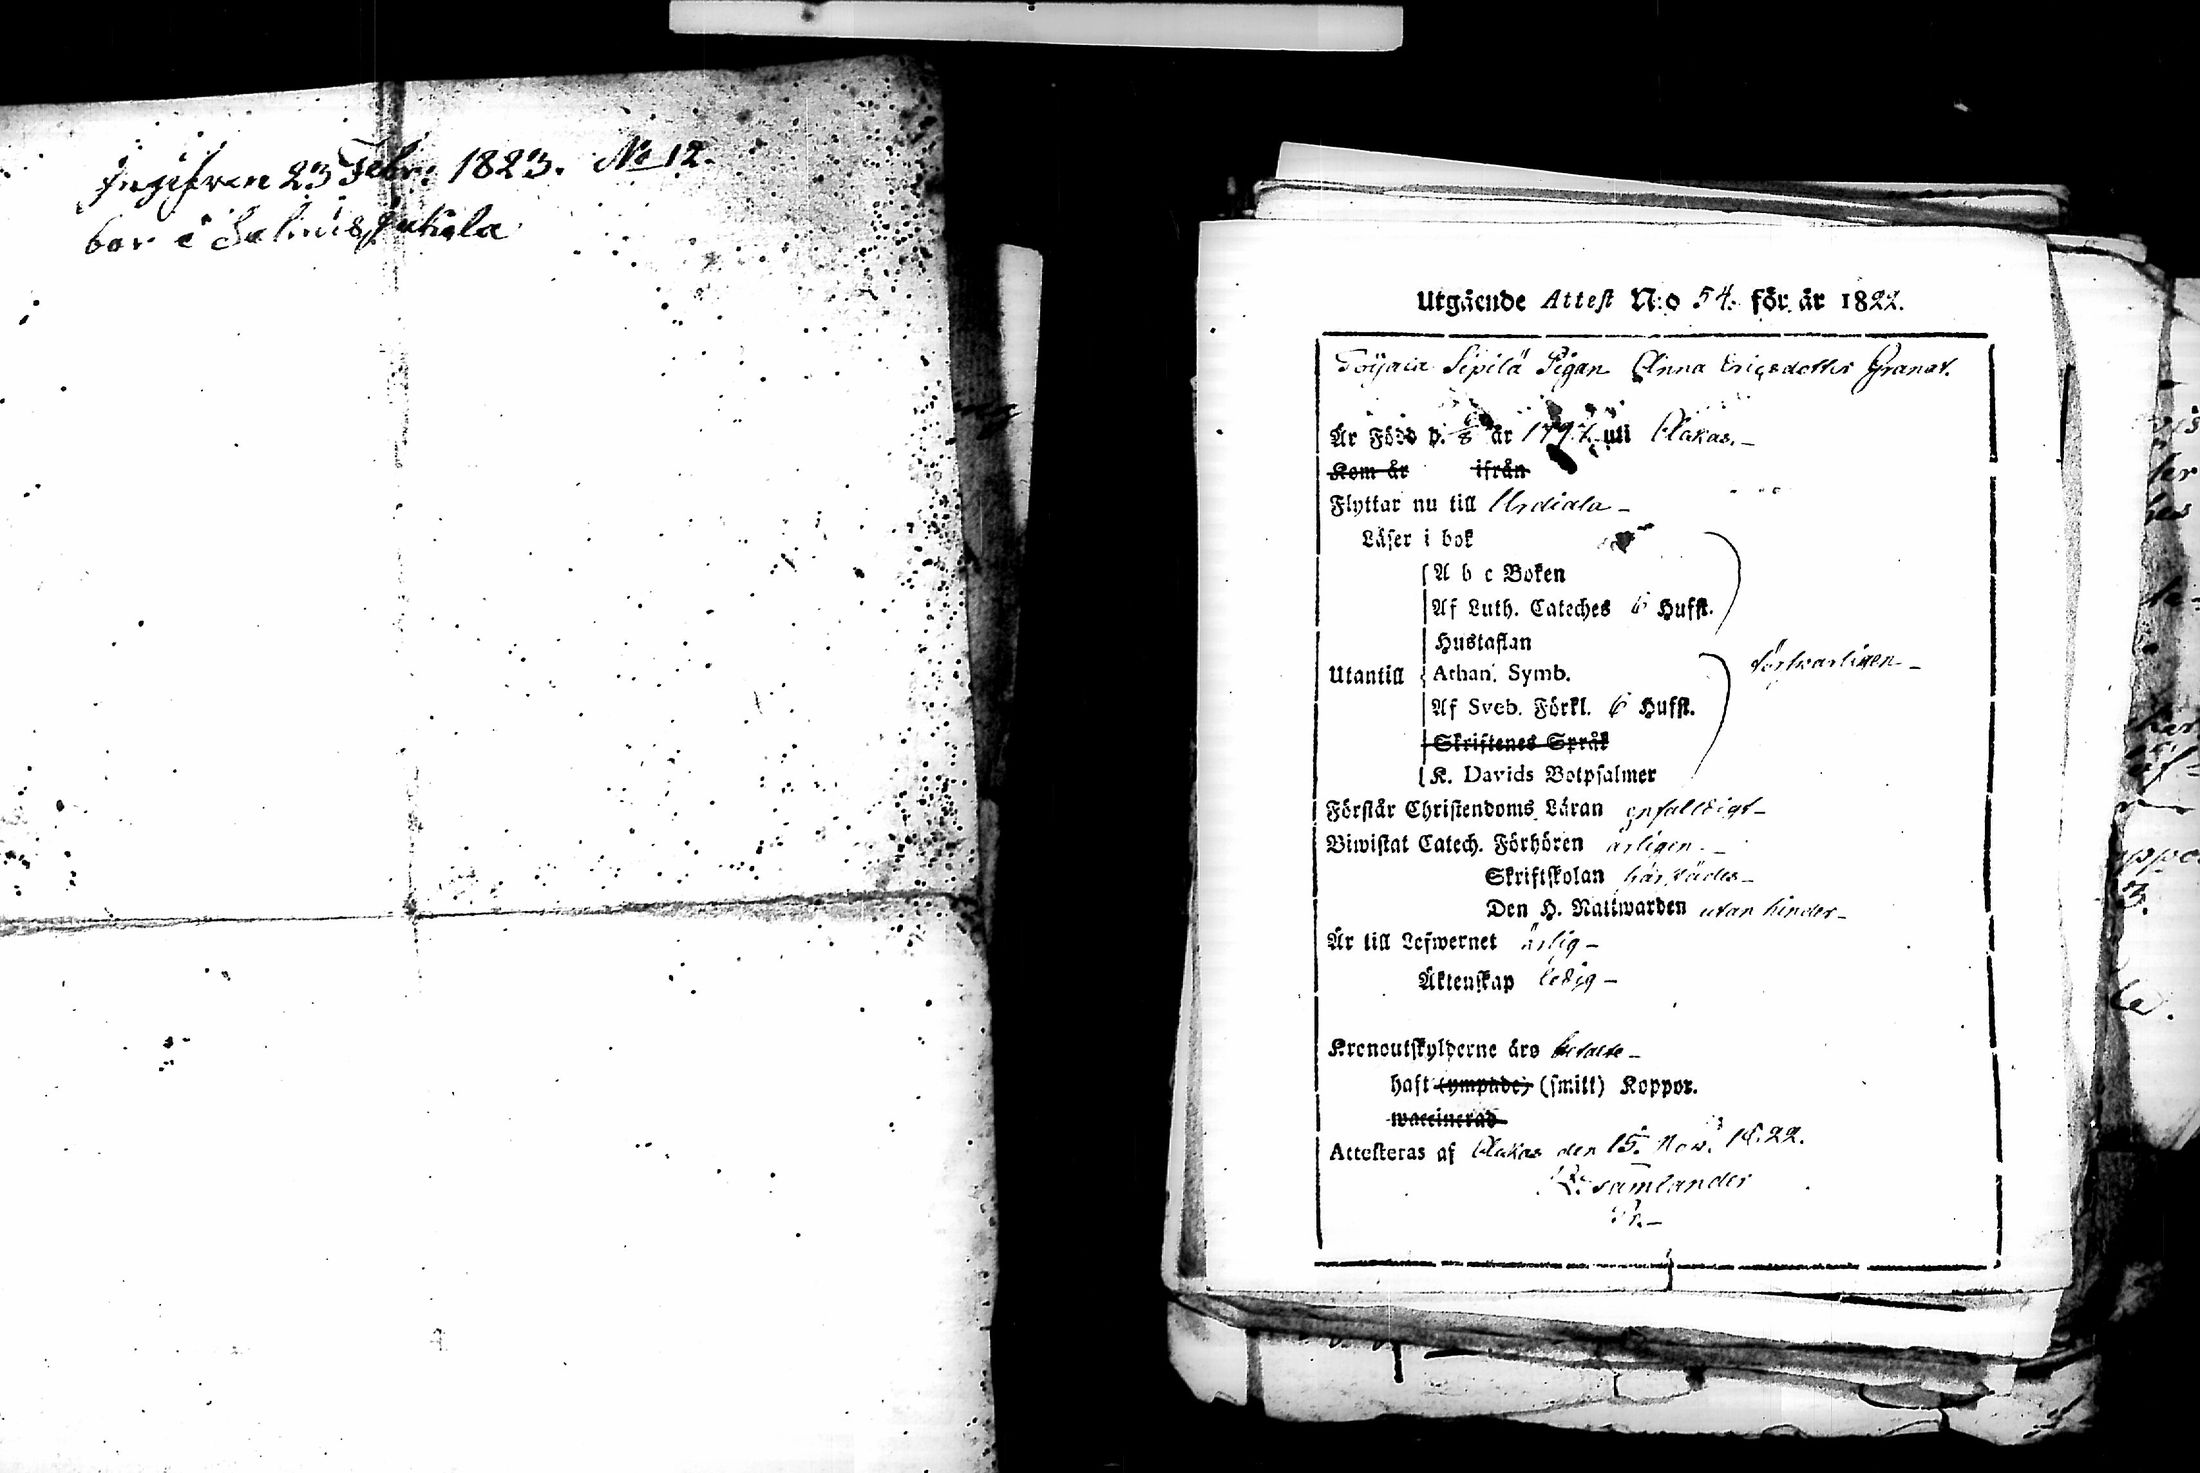 Ingifven 23 Febr: 1823. No 12.
bor i Salmis Jukola
Utgående Attest N:o 54. för år 1822.
Toijaia Sipilä Pigan Anna Ericsdotter Granat.
Är Född d. 8 år 1797 uti Akas.
Kom år ifrån
Flyttar nu till Urdiala
Läser i bok
A b c Boken
Af Luth. Cateches 6 Hufst.
Hustaflan
Utantill Athan. Symb. förswarligen
Af Sveb. Förkl. 6 Hufst.
Skriftenes Språk
K. Davids Botpsalmer
Förstår Christendoms Läran enfalldigt
Biwistat Catech. Förhören årligen
Skriftskolan härstädes
Den H. Nattwarden utan hinder
Är till Lefwernet ärlig
Äktenskap ledig
Kronoutskylderne äro betalte
haft (ympade) (smitt) Koppor.
waccinerad
Attesteras af Akas den 15. Nov. 1822.
Samlander